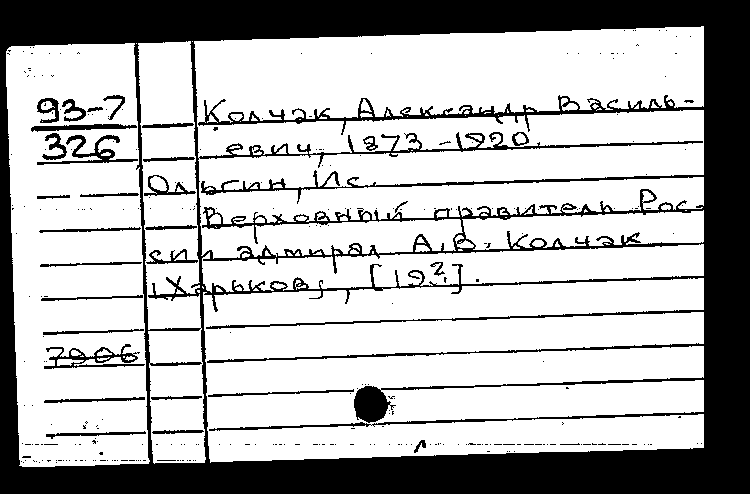 93-7
326
Колчак, Александр Василь-
евич, 1873-1920.
Ольгин, Ис.
Верховный правитель Рос-
сии адмирал А.В. Колчак
[Харьков], [19?].
7906